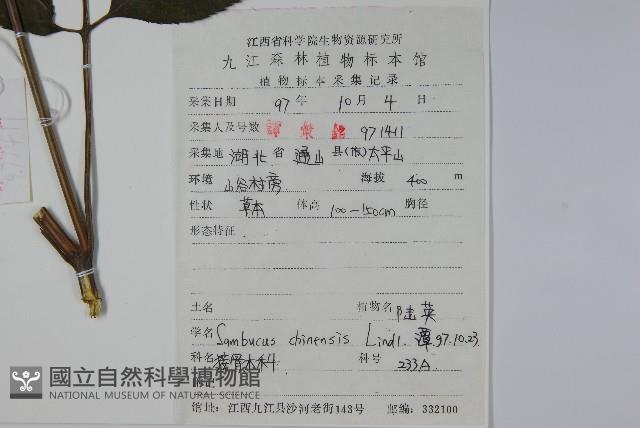 江西省科学院生物资源研究所
九江森林植物标本馆
植物标本采集记录
采集日期 97年 10月 4 日
采集人及号数 971411
采集地 湖北省 通山县(市)太平山
环境 山谷村旁 海拔 400 m
性状 草本 体高 100-150cm 胸径
形态特征
土名 植物名 陆英
学名 Sambucus chinensis Lindl. 潭.97.10.23.
科名 接骨木科 科号 233A
國立自然科學博物館
NATIONAL MUSEUM OF NATURAL SCIENCE
馆地:江西九江县沙河老街143号 邮编:332100